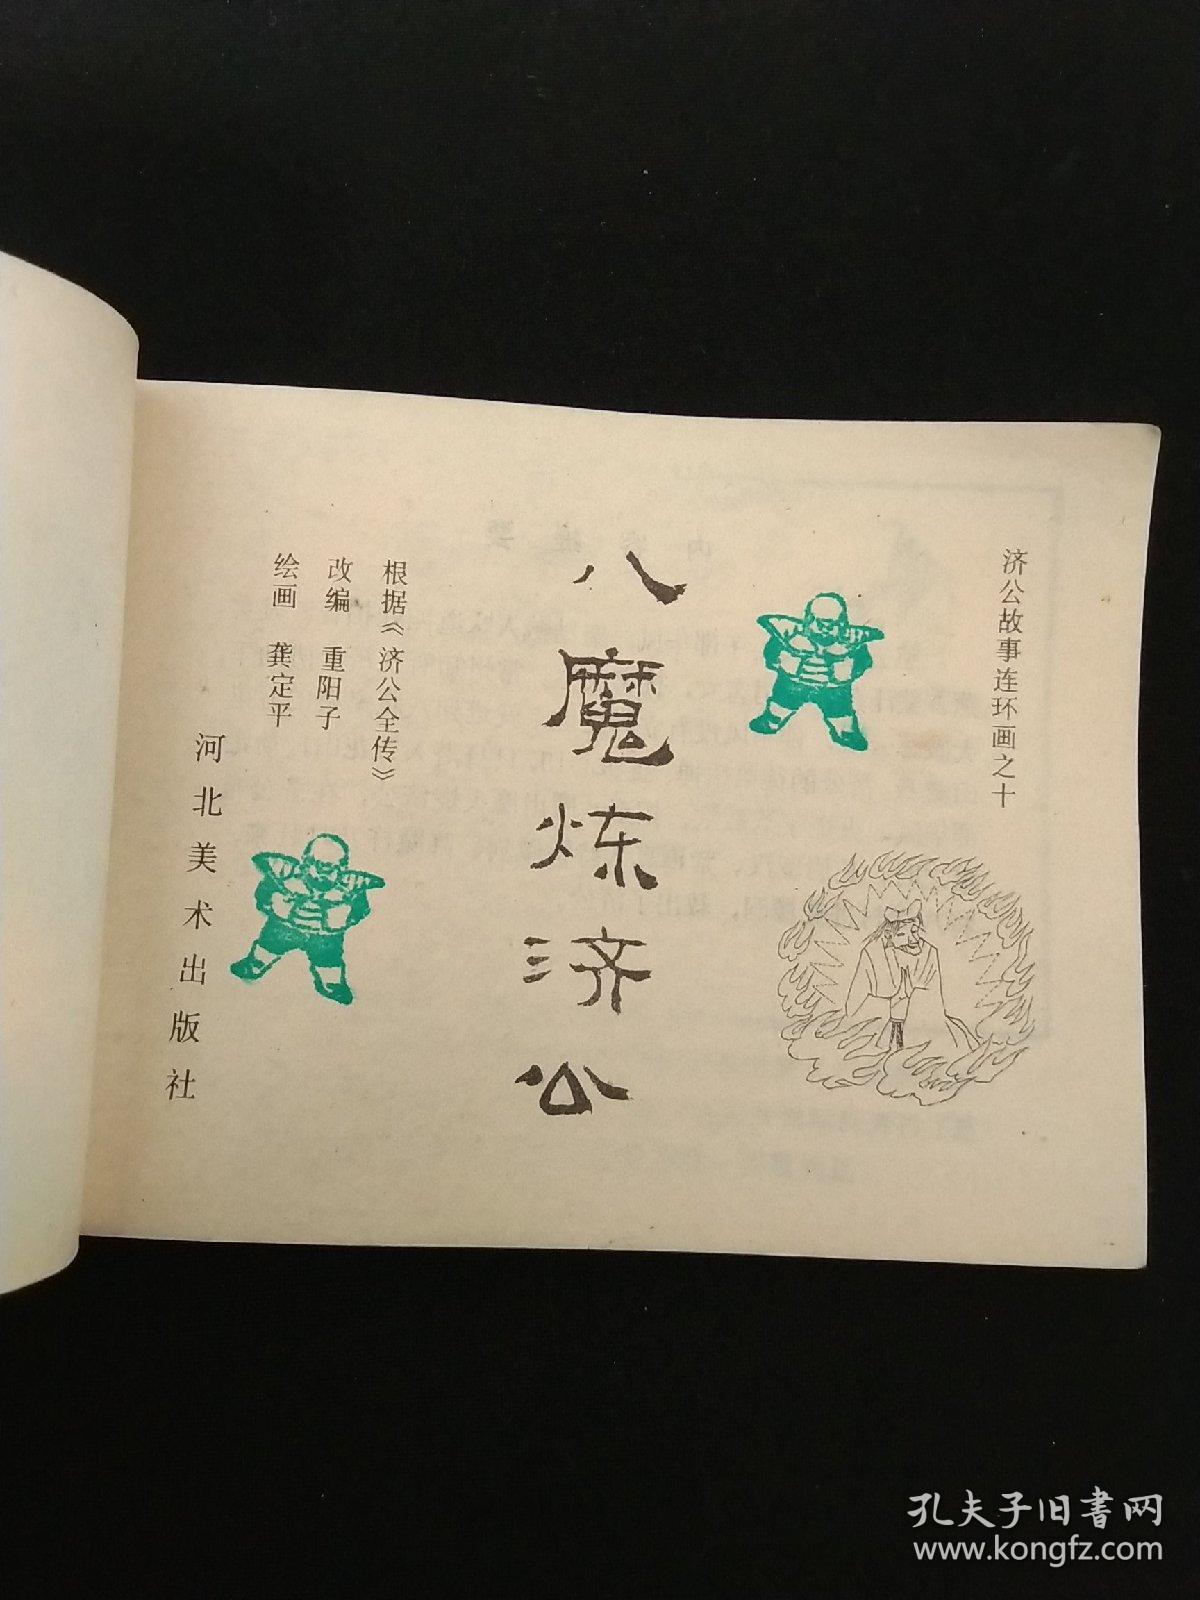 济公故事连环画之十
八魔炼济公
根据《济公全传》
改编 重阳子
绘画 龚定平
河北美术出版社
孔夫子旧书网
www.kongfz.com